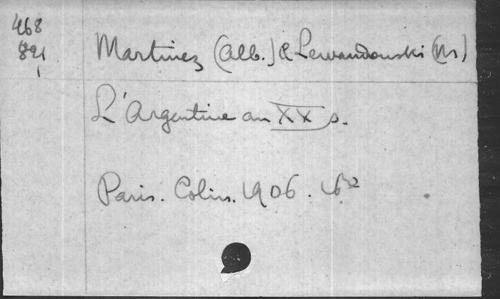 468
891
Martinez (Alb.) & Lewandowski (M)
L'Argentine au XX s.
Paris. Colin. 1906.